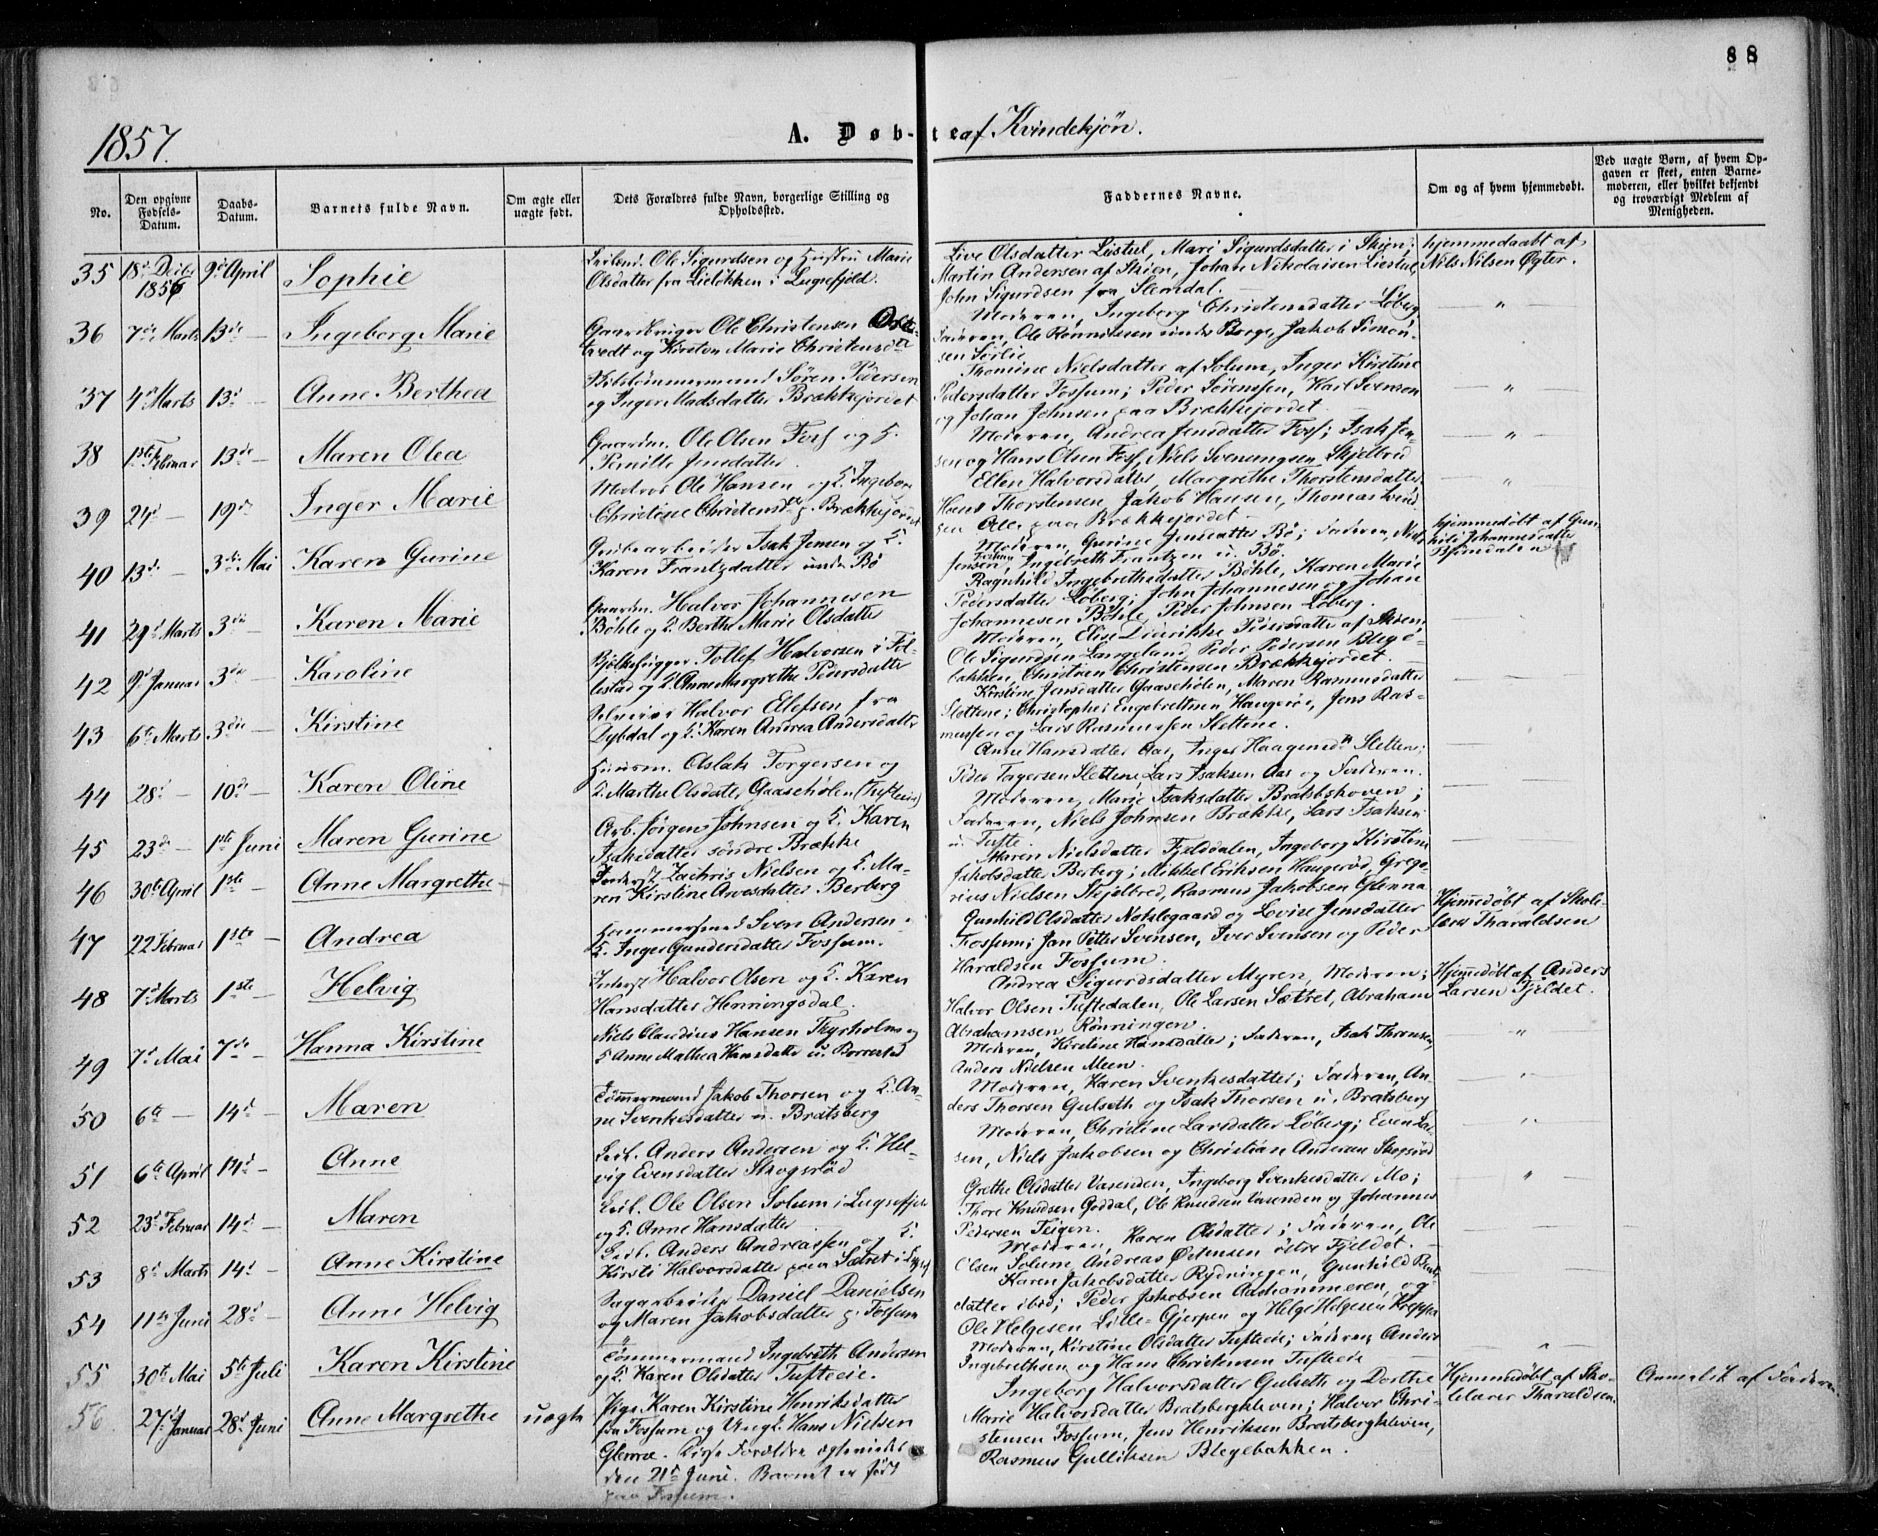 88
1857.
A. Døb-te af Kvindekjøn.
No.
Den opgivne Fødsels-Datum.
Daabs-Datum.
Barnets fulde Navn.
Om ægte eller uægte født.
Dets Forældres fulde Navn, borgerlige Stilling og Opholdssted.
Faddernes Navne.
Om og af hvem hjemmedøbt.
Ved uægte Børn, af hvem Opgaven er skeet, enten Barnemoderen, eller hvilket bekjendt og troværdigt Medlem af Menigheden.
35 18d Decbr 1856 9d April Sophie
Ole Sigurdsen og Hustru Marie
Olsdatter fra Lielökken i Luxefjeld.
Live Olsdatter Liestul, Mari Sigurdsdatter i Skien;
Martin Andersen af Skien, Johan Nikolaisen Liestul
John Sigurdsen fra Slemdal.
hjemmedaabt af
Nils Nilsen Øgter.
36 7de Marts 13de — Ingeborg Marie
Gaardbruger Ole Christensen
tvedt og Kirsten Marie Christensdtr
Moderen, Ingeborg Christensdatter Löberg
Faderen, Ole Rønnildsen under Borge, Jakob Simon-
sen Sörlie
37 4d Marts 13d — Anne Berthea
Søren Pedersen
og Inger Madsdatter Brækkejordet
Thomine Nielsdatter af Solum, Inger Kirstine
Pedersdatter Fossum; Peder Sörenssen, Karl Svenson
og Johan Johnsen paa Brækkejordet
38 1ste Februar 13de — Maren Olea
Gaardm. Ole Olsen Foss og H.
Pernille Jensdatter
Moderen, Andrea Jensdatter Foss; Isak Jen-
sen og Hans Olsen Foss, Niels Svenungsen Skjelbred
39 24d — 19d — Inger Marie
Ole Hansen og H. Ingeborg
Christine Christensdtr p. Brækkejordet
Ellen Halvorsdatter, Margrethe Thorstensdatter
Hans Thorstensen, Jakob Hansen, Thomas
Alle paa Brækkejordet —
40 13de — 3die Mai Karen Gurine
Grubearbeider Isak Jensen og H.
Karen Frantzdatter under Bö
Moderen, Gurine Jensdatter Bö; Faderen, Niels
Jensen, Ingebreth Frantzen u. Bö.
hjemmedøbt af Gun-
hild Johannesdatter
Bjørndalen
41 29d Marts 3die — Karen Marie
Gaardm. Halvor Johannesen
Böhle og H. Berthe Marie Olsdatter
Ragnhild Ingebrethsdatter Böhle, Karen Marie
Pedersdatter Löberg; John Johannesen og Johan
Johannesen Böhle, Peder Johnsen Löberg.
42 9d Januar 3die — Karoline
Bjelkehugger Tollef Halvorsen i Fol-
lestad og H. Anne Margrethe Pedersdatter
Moderen, Elise Didrikke Pedersdatter af Skien
Ole Sigurdsen Langeland, Peder Pedersen Blege-
bakken, Christian Christensen Brækkejordet.
43 6te Marts 3die — Kirstine
Selveier Halvor Ellefsen fra
Dybdal og H. Karen Andrea Andersdatter
Kirstine Jensdatter Gaasehölen, Maren Rasmusdatter
Slettene; Christopher Engebretsen Haugeröe, Jens Ras-
mussen og Lars Rasmussen Slettene.
44 28d — 10de — Karen Oline
Huusm. Aslak Torgersen og
H. Marthe Olsdatter Gaasehölen (Tufteeie)
Anne Hansdatter Aas, Inger Haagensdtr Sletten;
Peder Tagersen Slettene, Lars Isaksen Aas og Faderen.
45 23de — 1ste Juni Maren Gurine
Arb. Jörgen Johnsen og H. Karen
Isaksdatter söndre Brække
Moderen, Marie Isaksdatter Bratsbskoven;
Faderen, Niels Johnsen Brække, Lars Isaksen
u. Tufte.
46 30te April 1ste — Anne Margrethe
Inderst Zachris Nielsen og H. Ma-
ren Kirstine Arvesdatter Berberg
Maren Nielsdatter Fjeldalen, Ingeborg Kirstine
Jakobsdatter Berberg; Mikkel Eriksen Haugeröd, Grego-
rius Nielsen Skjelbred, Rasmus Jakobsen Glenna
47 22 Februar 1ste — Andrea
Hammersmed Sven Andersen
H. Inger Gundersdatter Fossum.
Gunhild Olsdatter Nöklegaard og Lovise Jensdatter
Fossum; Jan Petter Svensen, Iver Svensen og Peder
Haraldsen Fossum.
Hjemmedøbt af Skole-
lærer Tharaldsen
48 7d Marts 1ste — Helvig
Inderst Halvor Olsen og H. Karen
Hansdatter Henningsdal.
Andrea Sigurdsdatter Myren, Moderen;
Halvor Olsen Tuftedalen, Ole Larsen Sætret, Abraham
Abrahamsen Rönningen.
Hjemmedøbt af Anders
Larsen Fjeldet.
49 7d Mai 7de — Hanna Kirstine
Niels Claudius Hansen Thyrholm og
H Anne Mathea Hansdatter u. Borrestad
Moderen, Kirstine Hansdatter; Faderen, Isak Thorsen,
Anders Nielsen Meen.
50 6te — 14d — Maren
Tömmermand Jakob Thorsen og H. An-
ne Svenkesdatter u. Bratsberg
Moderen, Karen Svenkesdatter; Faderen, An-
ders Thorsen Gulseth og Isak Thorsen u. Bratsberg
51 6te April 14d — Anne
Anders Andersen og H. Hel-
vig Evensdatter Skogeröd
Moderen, Christine Larsdatter Löberg; Even Lar-
sen, Niels Jakobsen og Christian Andersen Skogeröd
52 23d Februar 14d — Maren
Ole Olsen Solum i Luxefjeld
og H. Anne Hansdatter
Grethe Olsdatter Vasenden, Ingeborg Svenkesdatter Mo;
Thore Knudsen Goddal, Ole Knudsen Vasenden og Johannes
Pedersen Teigen.
53 8d Marts 14d — Anne Kirstine
Anders Andreassen og H.
Kirsti Halvorsdatter paa Sætret i Luxefj
Moderen, Karen Olsdatter; Faderen, Ole
Olsen Solum, Andreas Östensen östre Fjeldet.
54 11te Juni 28d — Anne Helvig
Sagarbeider Daniel Danielsen
og Maren Jakobsdatter p. Fossum
Karen Jakobsdatter Rydningen, Gunhild
datter ibid; Peder Jakobsen Aashammeren, og
Ole Helgesen Lille-Gjerpen og Helge Helgesen
55 30te Mai 5te Juli Karen Kirstine
Tömmermand Ingebreth Andersen
og H. Karen Olsdatter Tufteeie.
Moderen, Kirstine Olsdatter Tufteeie; Faderen, Anders
Ingebrethsen og Hans Christensen Tufteeie
56. 27d Januar 28d Juni Anne Margrethe uægte
Pige Karen Kirstine Henriksdatter
fra Fossum og Ungk. Hans Nielsen
Glenna. Disse Forældre ægteviedes
den 21d Juni. Barnet er født
paa Fossum.
Ingeborg Halvorsdatter Gulseth og Dorthe
Marie Halvorsdatter Bratsbergkleven; Halvor Chri-
stensen Fossum, Jens Henriksen Bratsbergkleven,
Rasmus Gulliksen Blegebakken.
Hjemmedøbt af Sko-
lelærer Tharaldsen
Anmeldt af Faderen